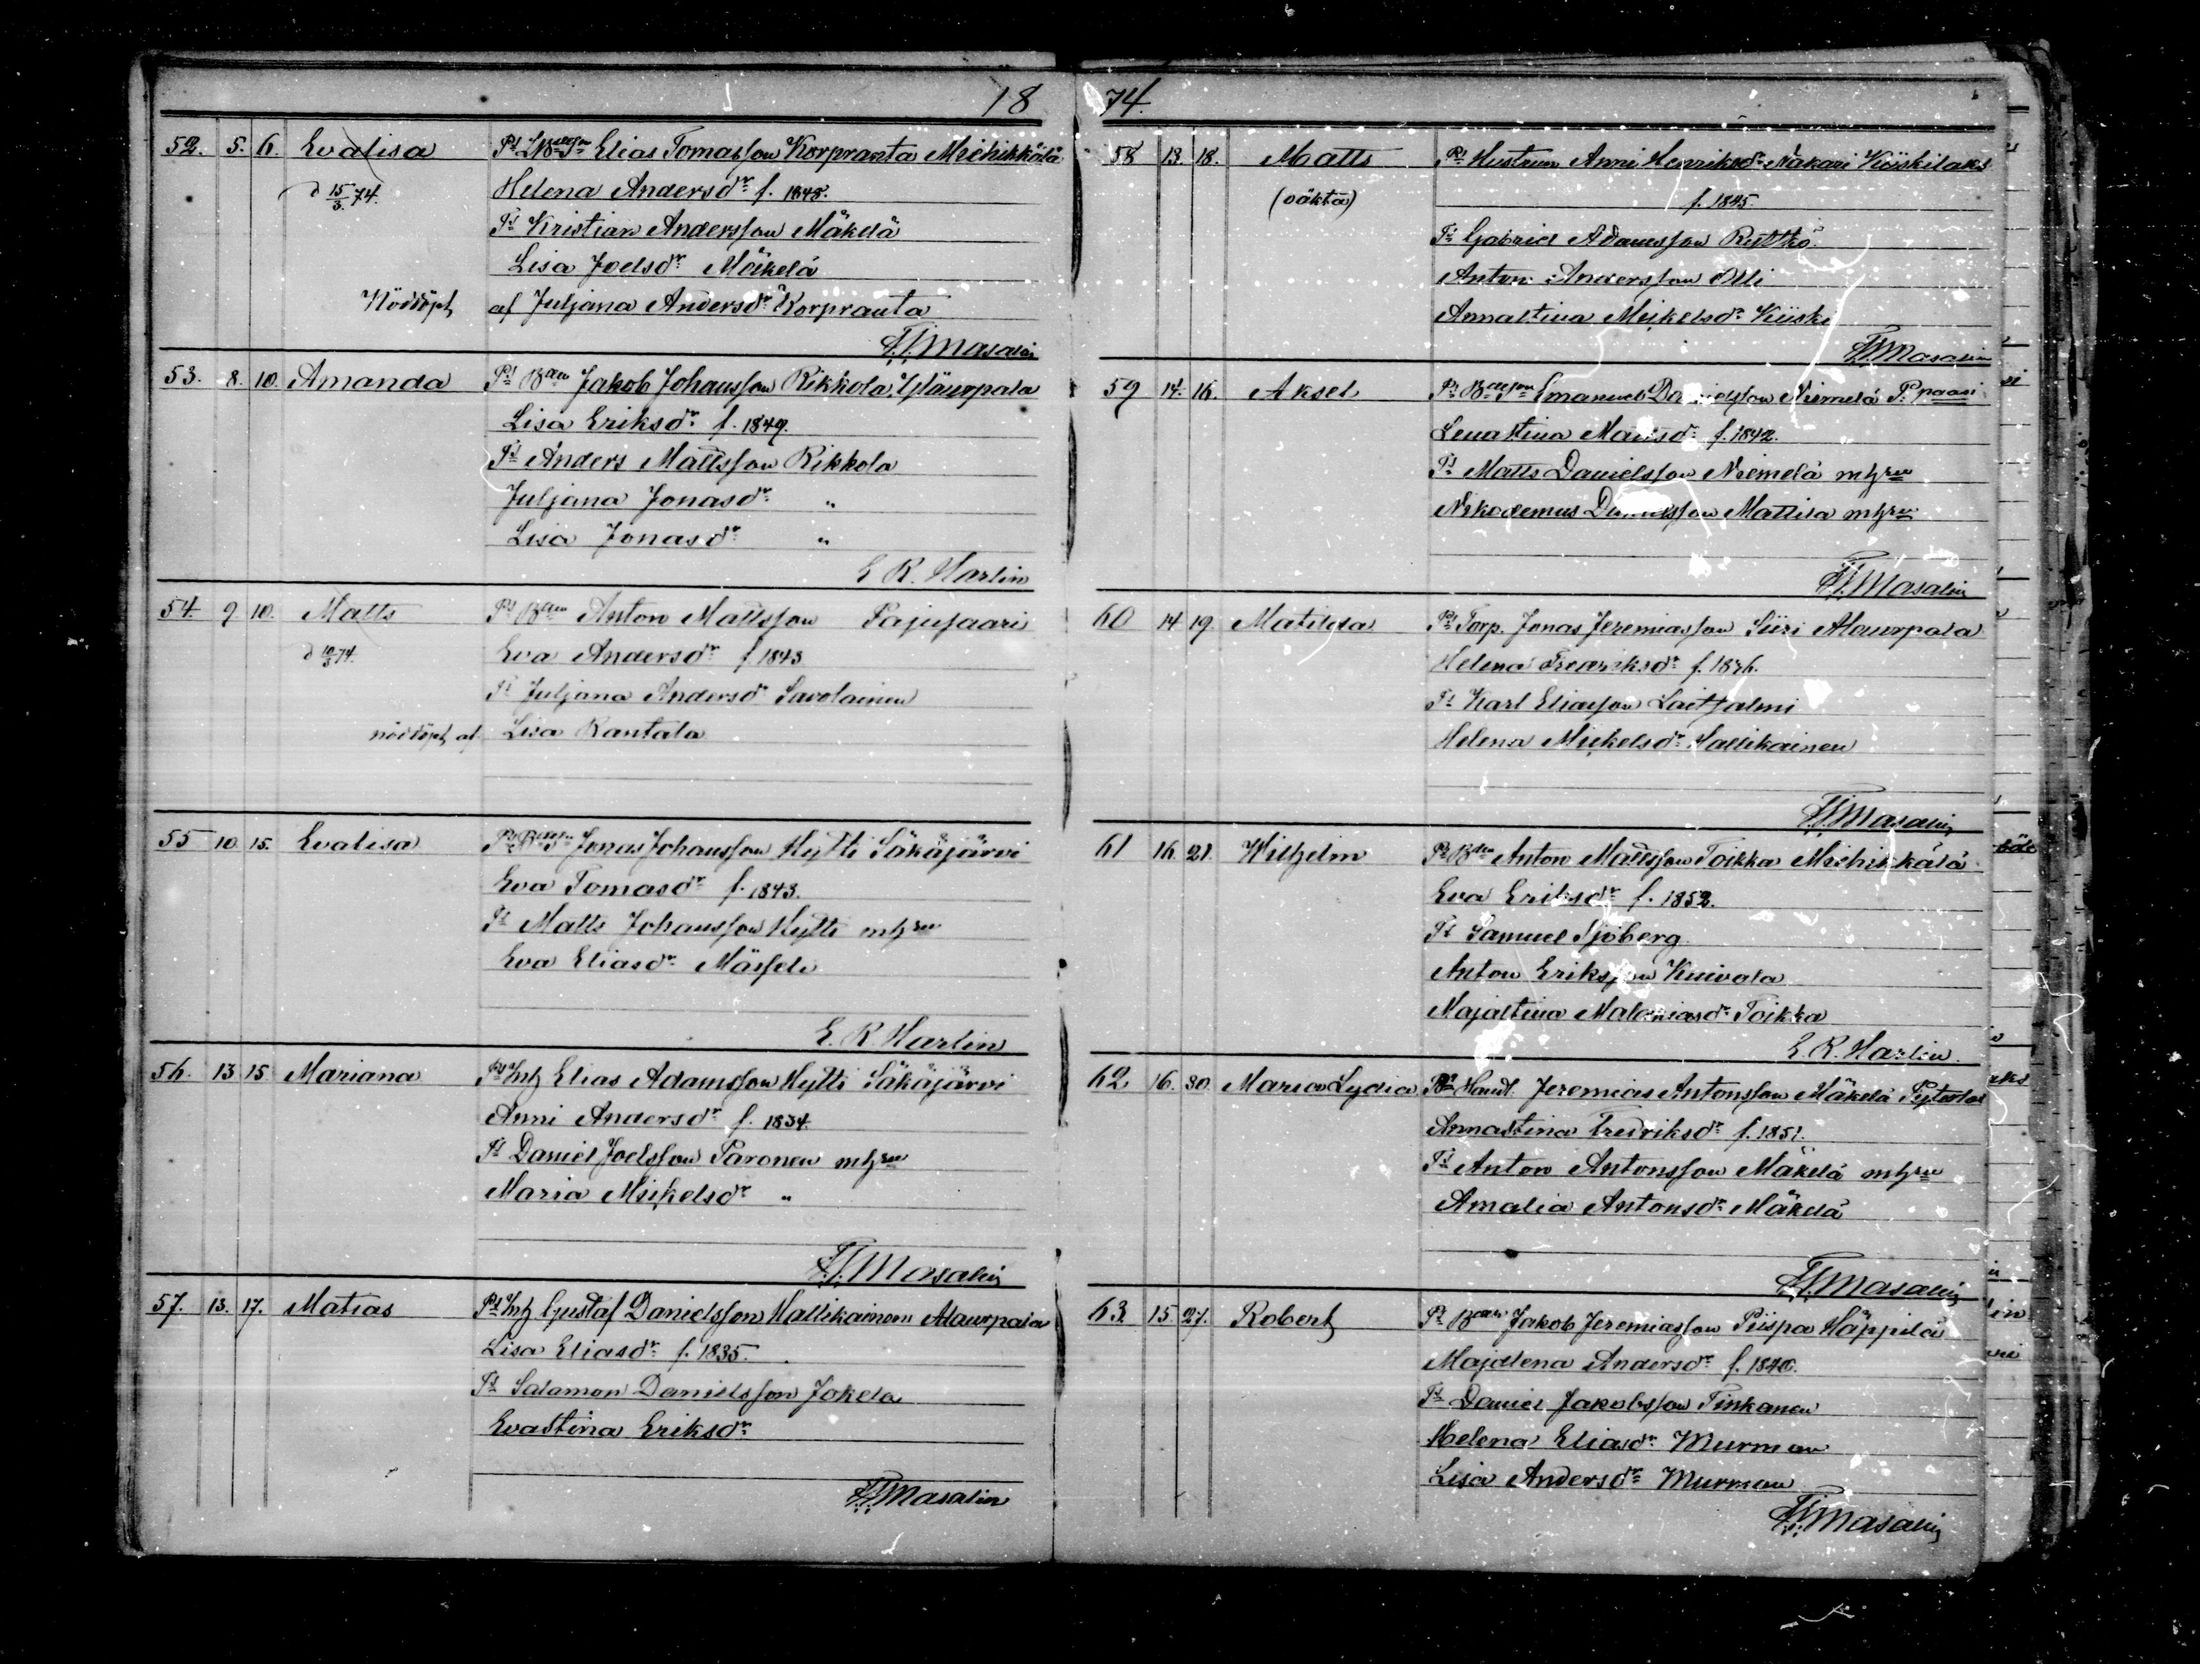 1874.
52. 5. 6. Evalisa Elias Tomasson Korpranta Miehikkälä
d 15/3 74. Helena Andersdr f. 1848.
Kristian Andersson Mäkelä
Lisa Joelsdr Mäkelä
Nöddöpt af Juljana Andersdr Korpranta
Masalin
53. 8. 10. Amanda Jakob Johansson Rikkola
Lisa Eriksdr f. 1849.
Anders Mattsson Rikkola
Juljana Jonasdr "
Lisa Jonasdr "
E R. Harlin
54. 9 10. Matts Anton Mattsson Pajusaari
d 10/3 74. Eva Andersdr f 1843
Juljana Andersdr Savolainen
nöddöpt af Lisa Rantala
55 10 15. Evalisa Jonas Johansson Hytti Säkäjärvi
Eva Tomasdr f. 1843.
Matts Johansson Hytti mhru
Eva Eliasdr
E. R. Harlin
56. 13 15 Mariana Elias Adamsson Hytti Säkäjärvi
Anni Andersdr f. 1834.
Daniel Joelsson Paronen mhru
Maria Mickelsdr "
Masalin
57. 13. 17. Matias Gustaf Danielsson Hallikainen Alaurpala
Lisa Eliasdr f. 1835.
Salamon Danielsson Jokela
Evastina Eriksdr
Masalin
58 13. 18. Matts Hustrun Anni Henriksdr Nakari
(oäkta) f. 1845.
Gabriel Adamsson
Anton Andersson Olli
Annastina Mickelsdr Kiiski
Masalin
59 14. 16. Aksel Emanuel Danielsson Niemelä
Lenastina f. 1842.
Matts Danielsson Niemelä mhru
Nikodemus Danielsson Mattila mhru
Masalin
60 14 19. Matilda Torp. Jonas Jeremiasson Siiri Alaurpala
Helena Fredriksdr
Karl Eliasson Laitsalmi
Helena Mickelsdr Hallikainen
Masalin
61 16. 21. Wilhelm Anton Mattsson Toikka Miehikkälä
Eva Eriksdr f. 1852.
Samuel Sjöberg
Anton Eriksson Kuivala
Majastina Toikka
E. R. Harlin.
62 16. 30. Maria Lydia Jeremias Antonsson Mäkelä
Annastina Fredriksdr f. 1851.
Anton Antonsson Mäkelä mhru
Amalia Antonsdr Mäkelä
Masalin
63. 15. 27. Robert Jakob Jeremiasson Piispa Häppilä
Majalena Andersdr f. 1840.
Daniel Jakobsson Tinkanen
Helena Eliasdr Murman
Lisa Andersdr Murman
Masalin